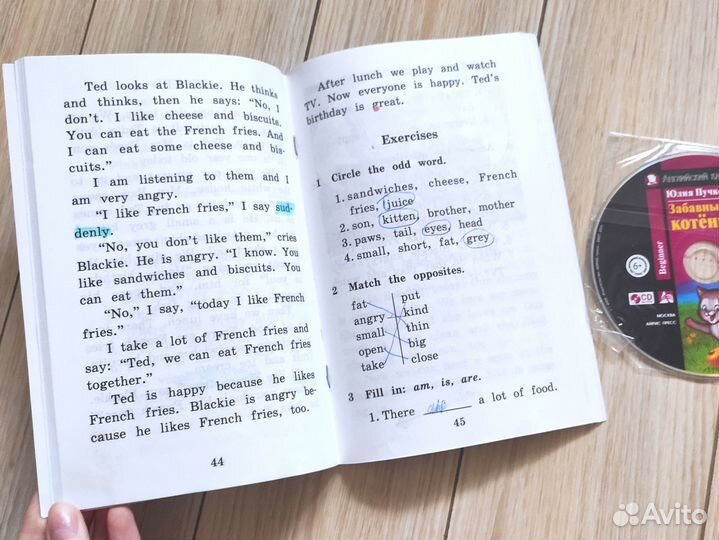 Ted looks at Blackie. He thinks
and thinks, then he says: “No, I
don’t. I like cheese and biscuits.
You can eat the French fries. And
I can eat some cheese and bis-
cuits.”
I am listening to them and I
am very angry.
“I like French fries,” I say sud-
denly.
“No, you don’t like them,” cries
Blackie. He is angry. “I know. You
like sandwiches and biscuits. You
can eat them.”
“No,” I say, “today I like French
fries.”
I take a lot of French fries and
say: “Ted, we can eat French fries
together.”
Ted is happy because he likes
French fries. Blackie is angry be-
cause he likes French fries, too.
44
After lunch we play and watch
TV. Now everyone is happy. Ted’s
birthday is great.
Exercises
1 Circle the odd word.
1. sandwiches, cheese, French
fries, juice
2. son, kitten, brother, mother
3. paws, tail, eyes, head
4. small, short, fat, grey
2 Match the opposites.
fat put
angry kind
small thin
open big
take close
3 Fill in: am, is, are.
1. There ____ a lot of food.
45
Английский кл
Юлия Пучко
Забавны
котён
Beginner
6+
CD
МОСКВА
АЙРИС ПРЕСС
Avito